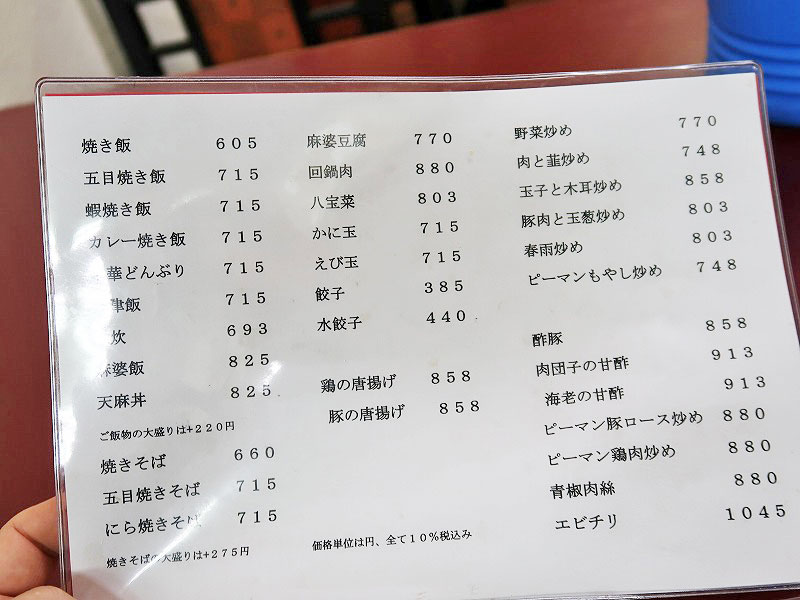 焼き飯 605
五目焼き飯 715
蝦焼き飯 715
カレー焼き飯 715
華どんぶり 715
津飯 715
炊 693
麻婆飯 825
天麻丼 825
ご飯物の大盛りは+220円
焼きそば 660
五目焼きそば 715
にら焼きそば 715
焼きそばの大盛りは+275円
麻婆豆腐 770
回鍋肉 880
八宝菜 803
かに玉 715
えび玉 715
餃子 385
水餃子 440
鶏の唐揚げ 858
豚の唐揚げ 858
価格単位は円、全て10%税込み
野菜炒め 770
肉と韮炒め 748
玉子と木耳炒め 858
豚肉と玉葱炒め 803
春雨炒め 803
ピーマンもやし炒め 748
酢豚 858
肉団子の甘酢 913
海老の甘酢 913
ピーマン豚ロース炒め 880
ピーマン鶏肉炒め 880
青椒肉絲 880
エビチリ 1045